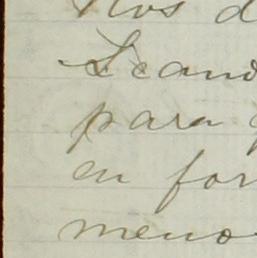 Nos d
Scand
para g
en for
meno